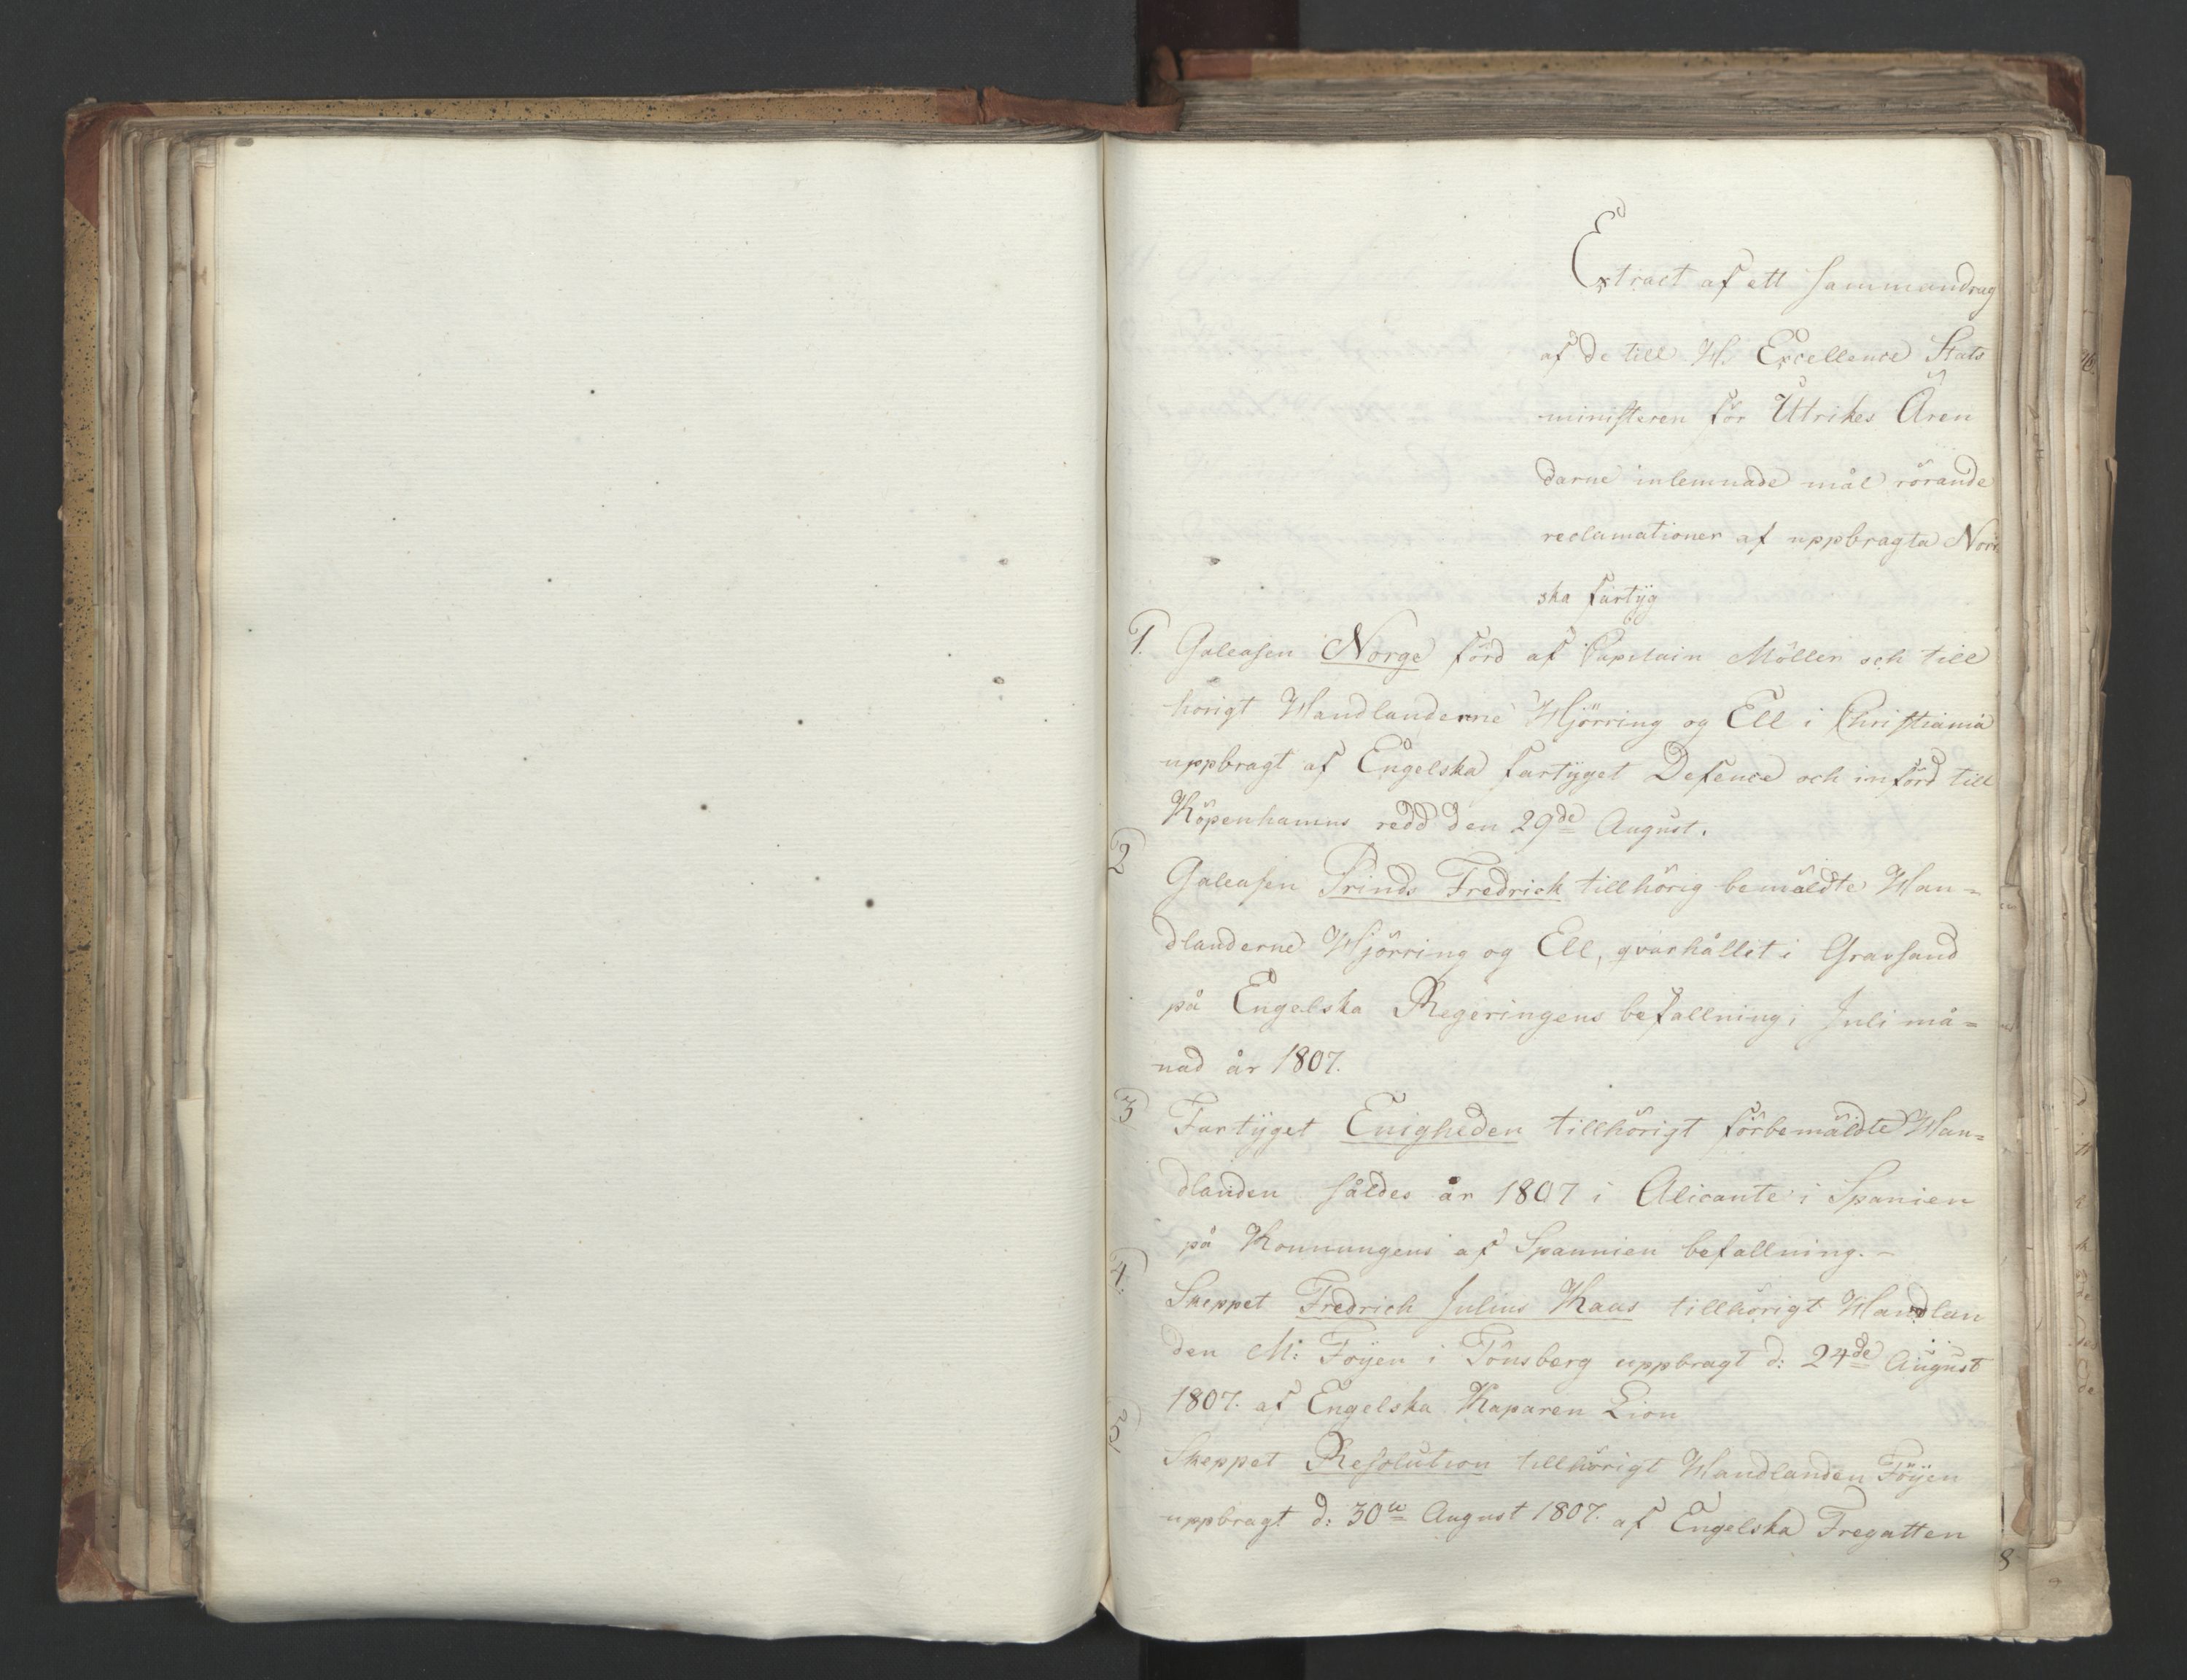 Extract af ett sammandrag
af de till H. Excellence Stats
ministeren för Utrikes Ären
darne inlemnade mål rörande
reclamationer af uppbragta Norr
ska fartyg
1. Galeasen Norge förd af Capitain Möller och till
horigt Handlanderne Hjörring og Ell i Christiania
uppbragt af Engelska fartyget Defence och införd till
Köpenhamns redd den 29de August.
2 Galeasen Prinds Fredrick tillhörig bemäldte Han=
dlanderne Hjörring og Ell, qvarhållit i Gravsand
på Engelska Regeringens befallning i Juli må=
nad år 1807.
3 Fartyget Enigheden tillhörigt förbemäldte Han=
dlanden såldes år 1807 i Alicante i Spanien
på Konnungens af Spannien befallning. -
4. Skeppet Fredrich Julius Kaas tillhörigt Handlan
den M: Föyen i Tönsberg uppbragt d: 24de August
1807. af Engelska Kaparen Lion
5 Skeppet Resolution tillhörigt Handlanden Föyen
uppbragt d: 30te August 1807. af Engelska Fregatten